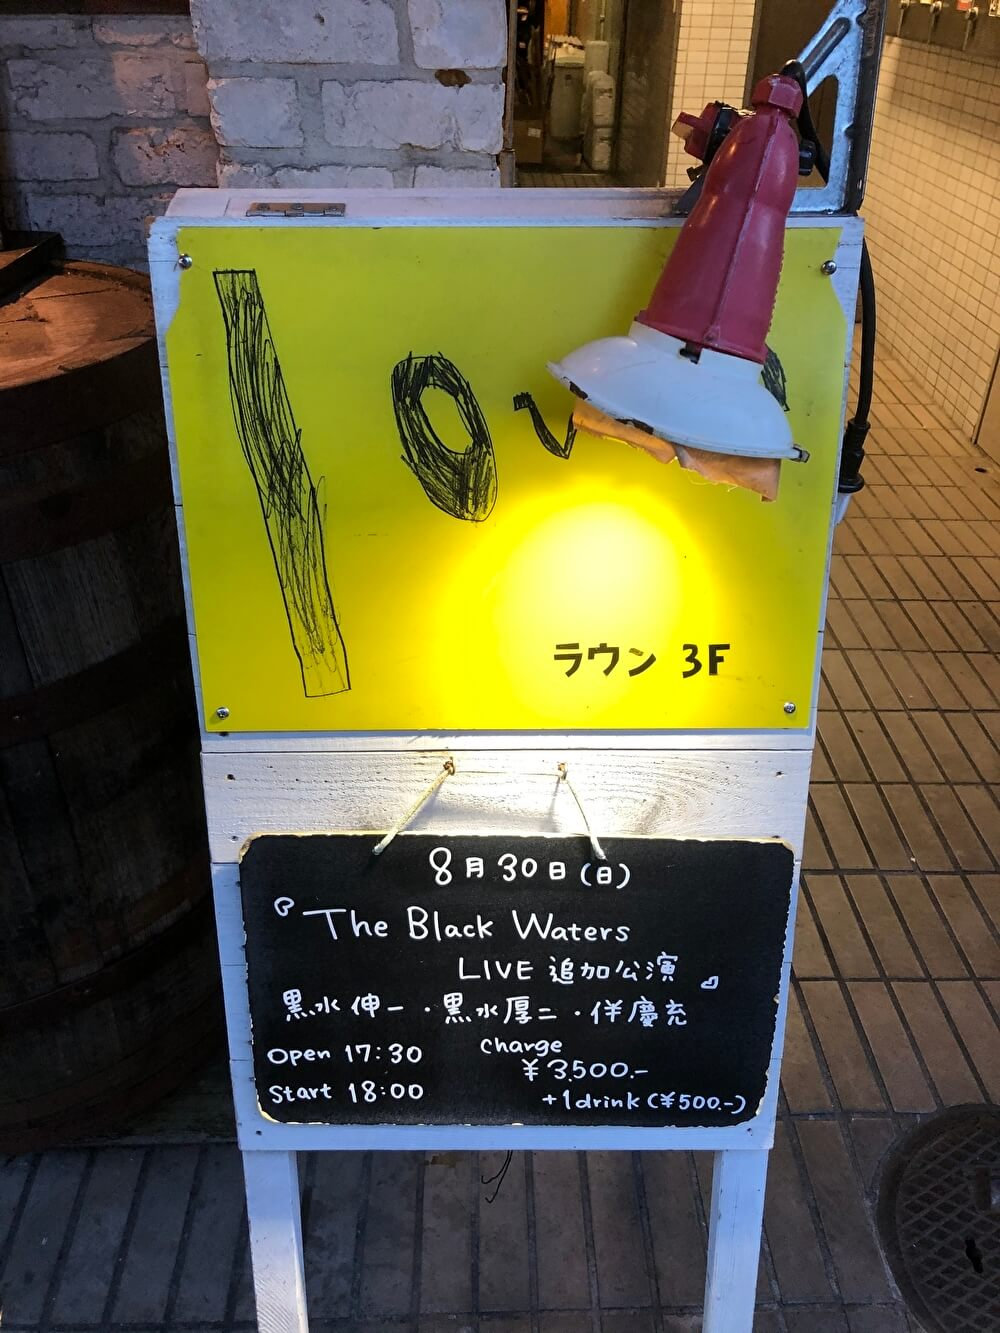 low
ラウン 3F
8月30日(日)
The Black Waters
LIVE 追加公演
黒水伸一・黒水厚二・伴慶充
Open 17:30
Start 18:00
charge
¥3,500.-
+1drink(¥500.-)